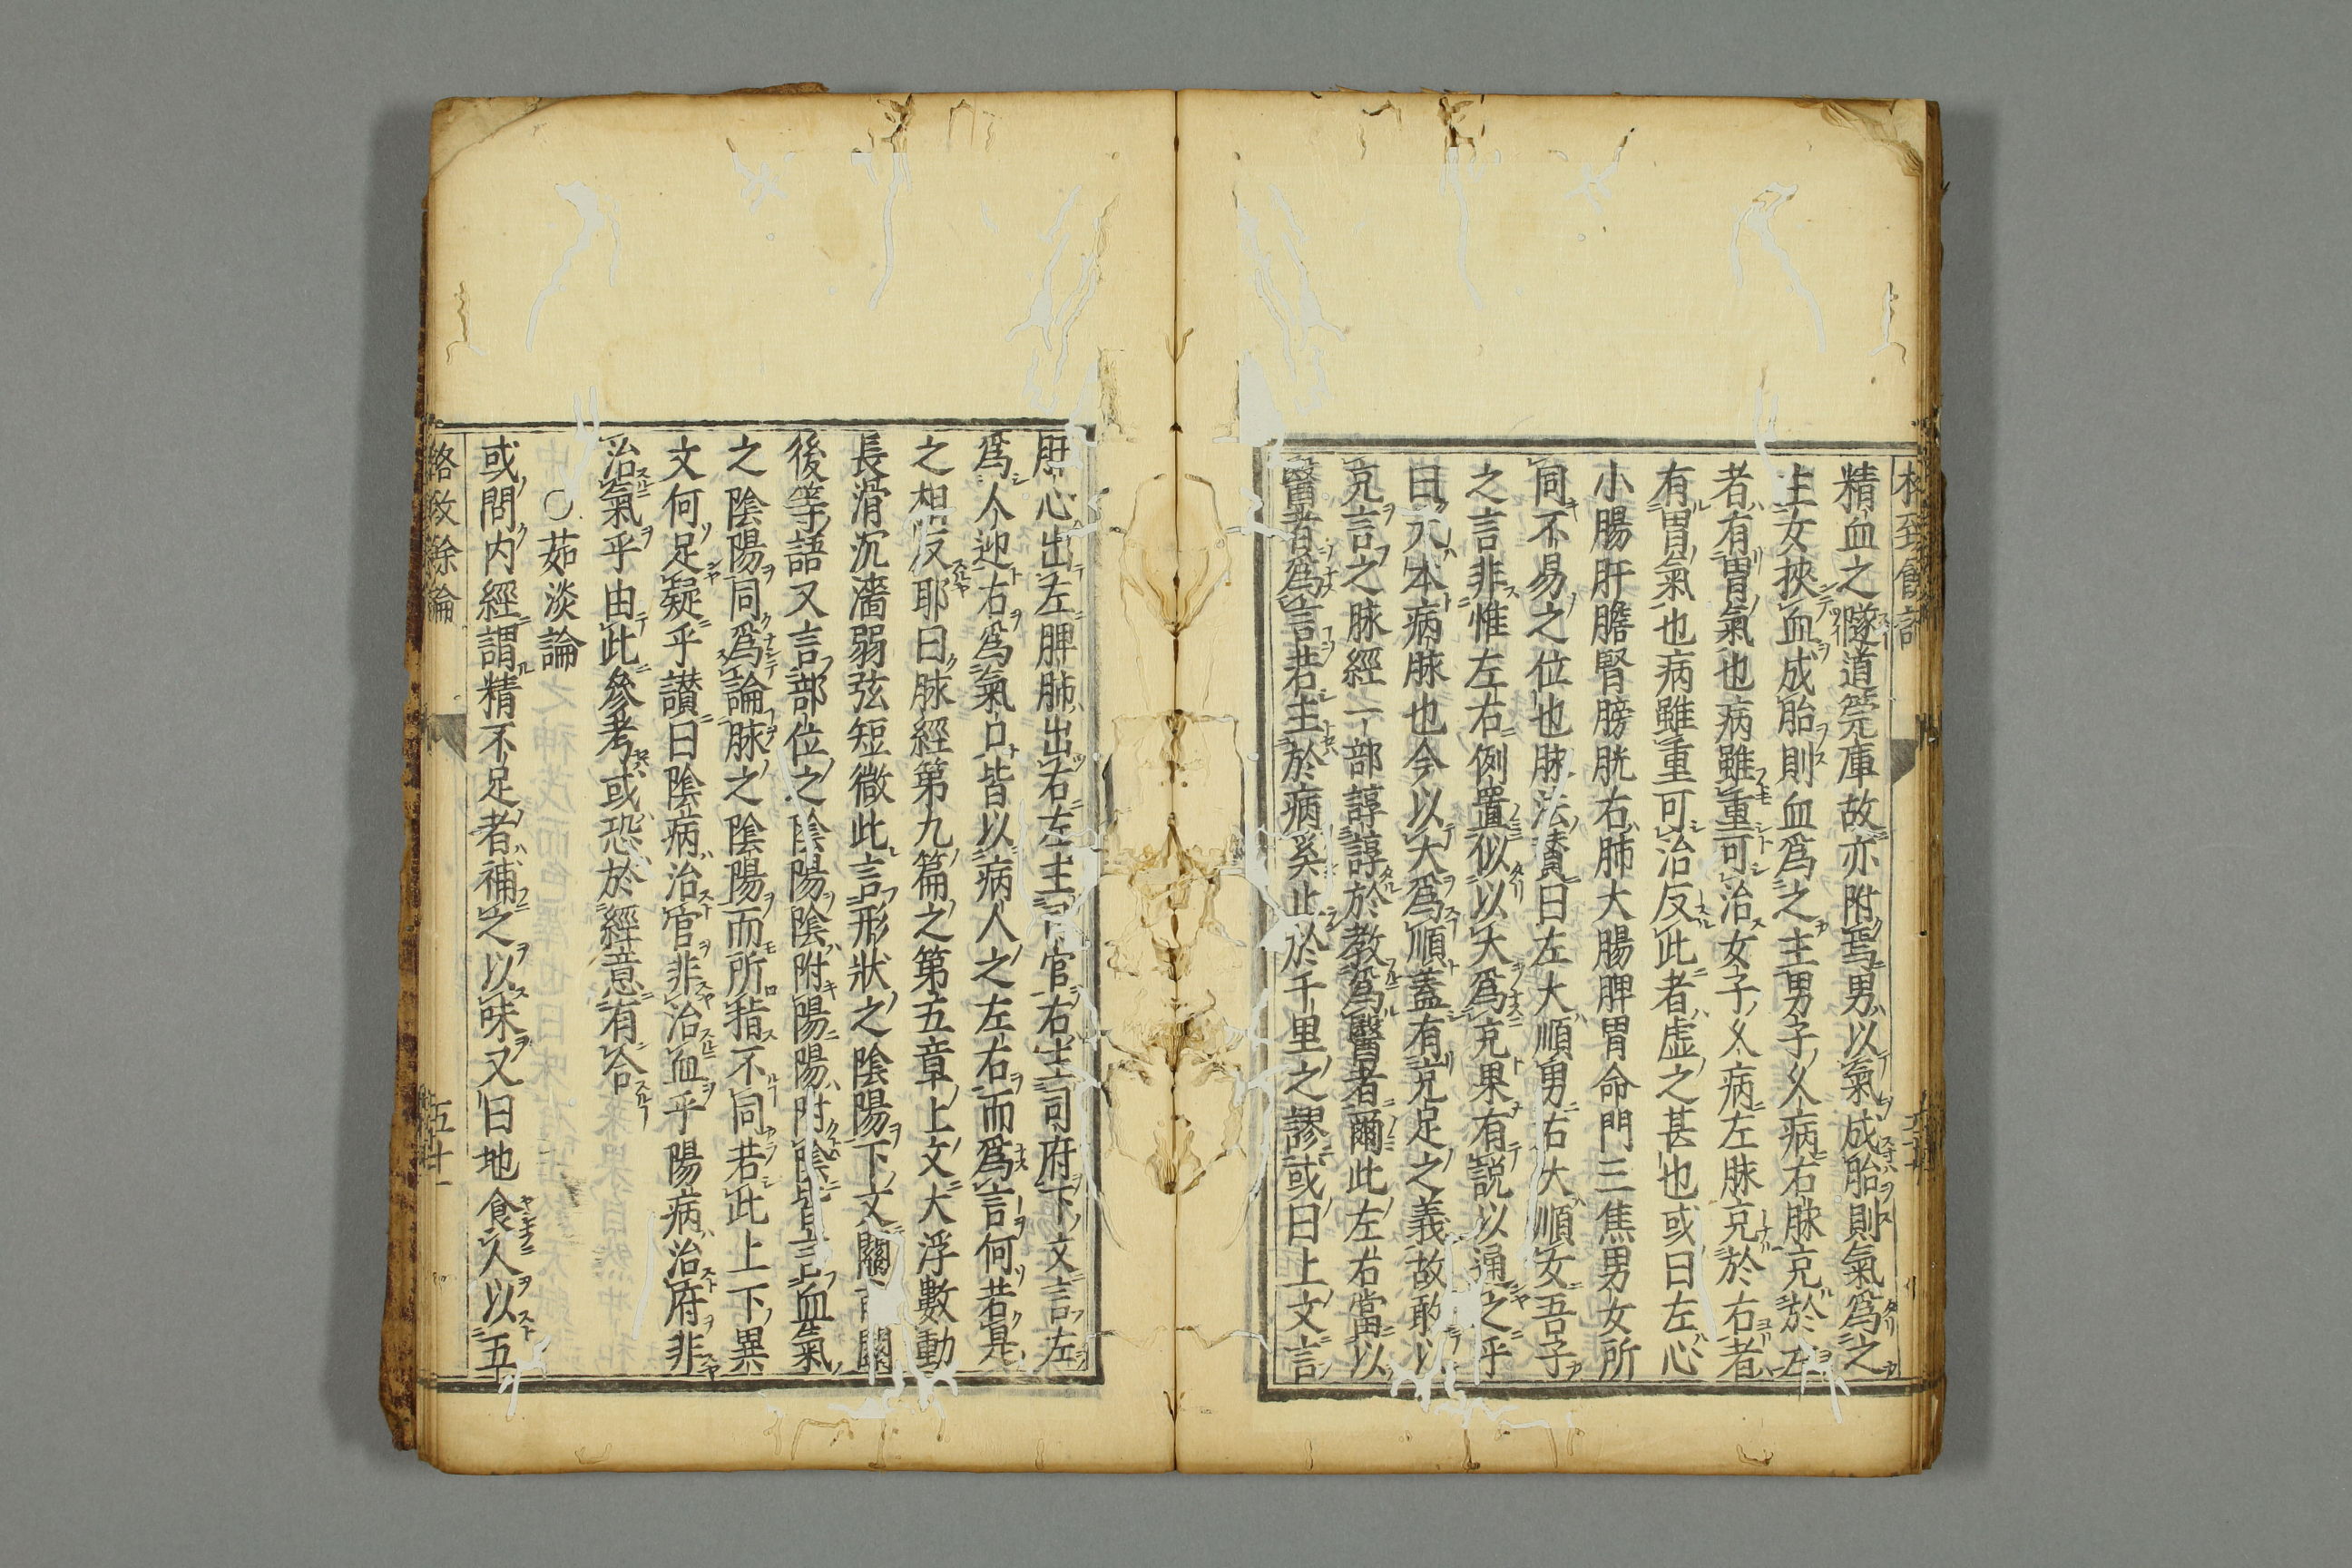 精血之隧道筦庫故亦附焉男以氣成胎則氣爲之
主女挾血成胎則血爲之主男子久病右脉充於左
者有胃氣也病雖重可治女子久病左脉充於右者
有胃氣也病雖重可治反此者虚之甚也或曰左心
小腸肝膽腎膀胱右肺大腸脾胃命門三焦男女所
同不易之位也脉法讃曰左大順男右大順女吾子
之言非惟左右例置似以大爲充果有説以通之乎
曰大本病脉也今以大爲順蓋有充足之義故敢以
充言之脉經一部諄諄於教爲醫者爾此左右當以
醫者爲言若主於病奚止於千里之謬或曰上文言
肝心出左脾肺出右左主司官右主司府下文言左
爲人迎右爲氣口皆以病人之左右而爲言何若是
之相反耶曰脉經第九篇之第五章上文大浮數動
長滑沉濇弱弦短微此言形狀之陰陽下文關前關
後等語又言部位之陰陽陰附陽陽附陰皆言血氣
之陰陽同爲論脉之陰陽而所指不同若此上下異
文何足疑乎讃曰陰病治官非治血乎陽病治府非
治氣乎由此參考或恐於經意有合
○茹淡論
或問内經謂精不足者補之以味又曰地食人以五
格致餘論
五十一